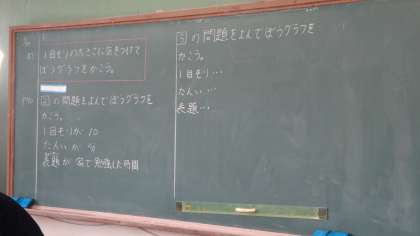 1目もりの大きさに気をつけて
ぼうグラフをかこう。
2の問題をよんでぼうグラフを
かこう。
1目もりが 10
たんいが
表題が 家で勉強した時間
3の問題をよんでぼうグラフを
かこう。
1目もり…
たんい…
表題…